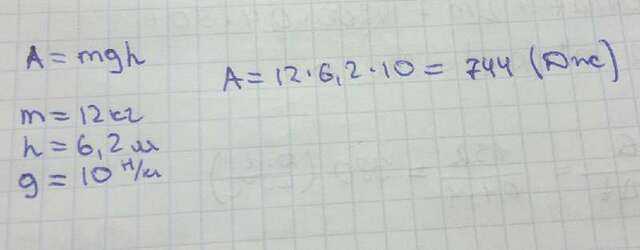 A = mgh
A = 12·6,2·10 = 744 (Дж)
m = 12 кг
h = 6,2 м
g = 10 Н/м